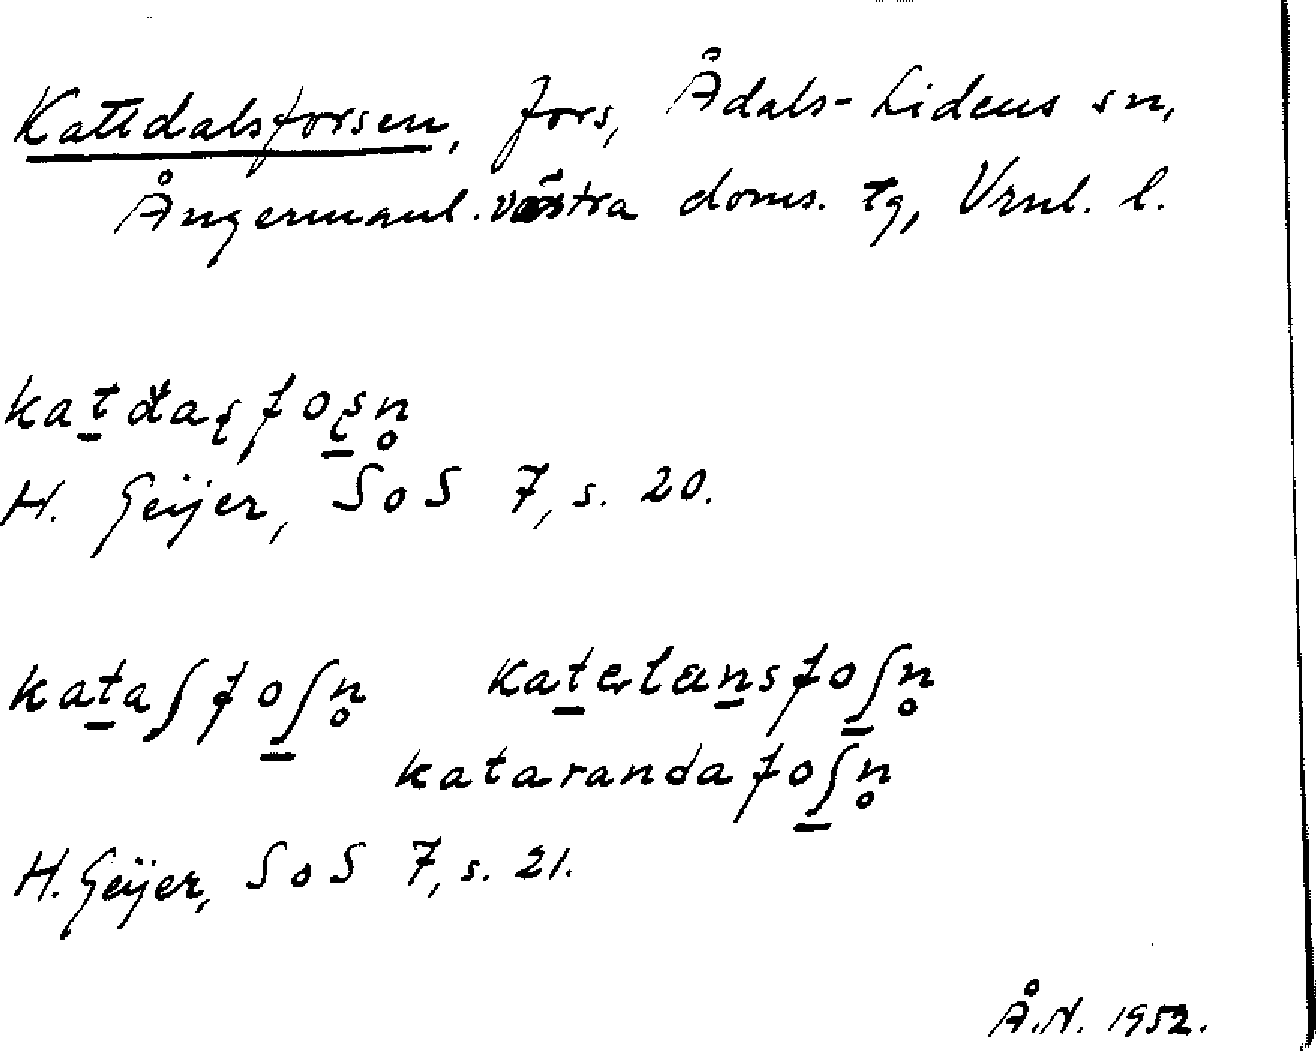 Kattdalsforsen, fors, Ådals-Lidens sn,
Ångermanl. västra doms. tg, Vrnl. l.
kat̲daʂfoʂ̲n̥
H. Geijer, SoS 7, s. 20.
kat̲aʃfoʃ̲n̥ kat̲erlan̲sfoʃ̲n̥
katarandafoʃ̲n̥
H. Geijer, SoS 7, s. 21.
Å.N. 1952.